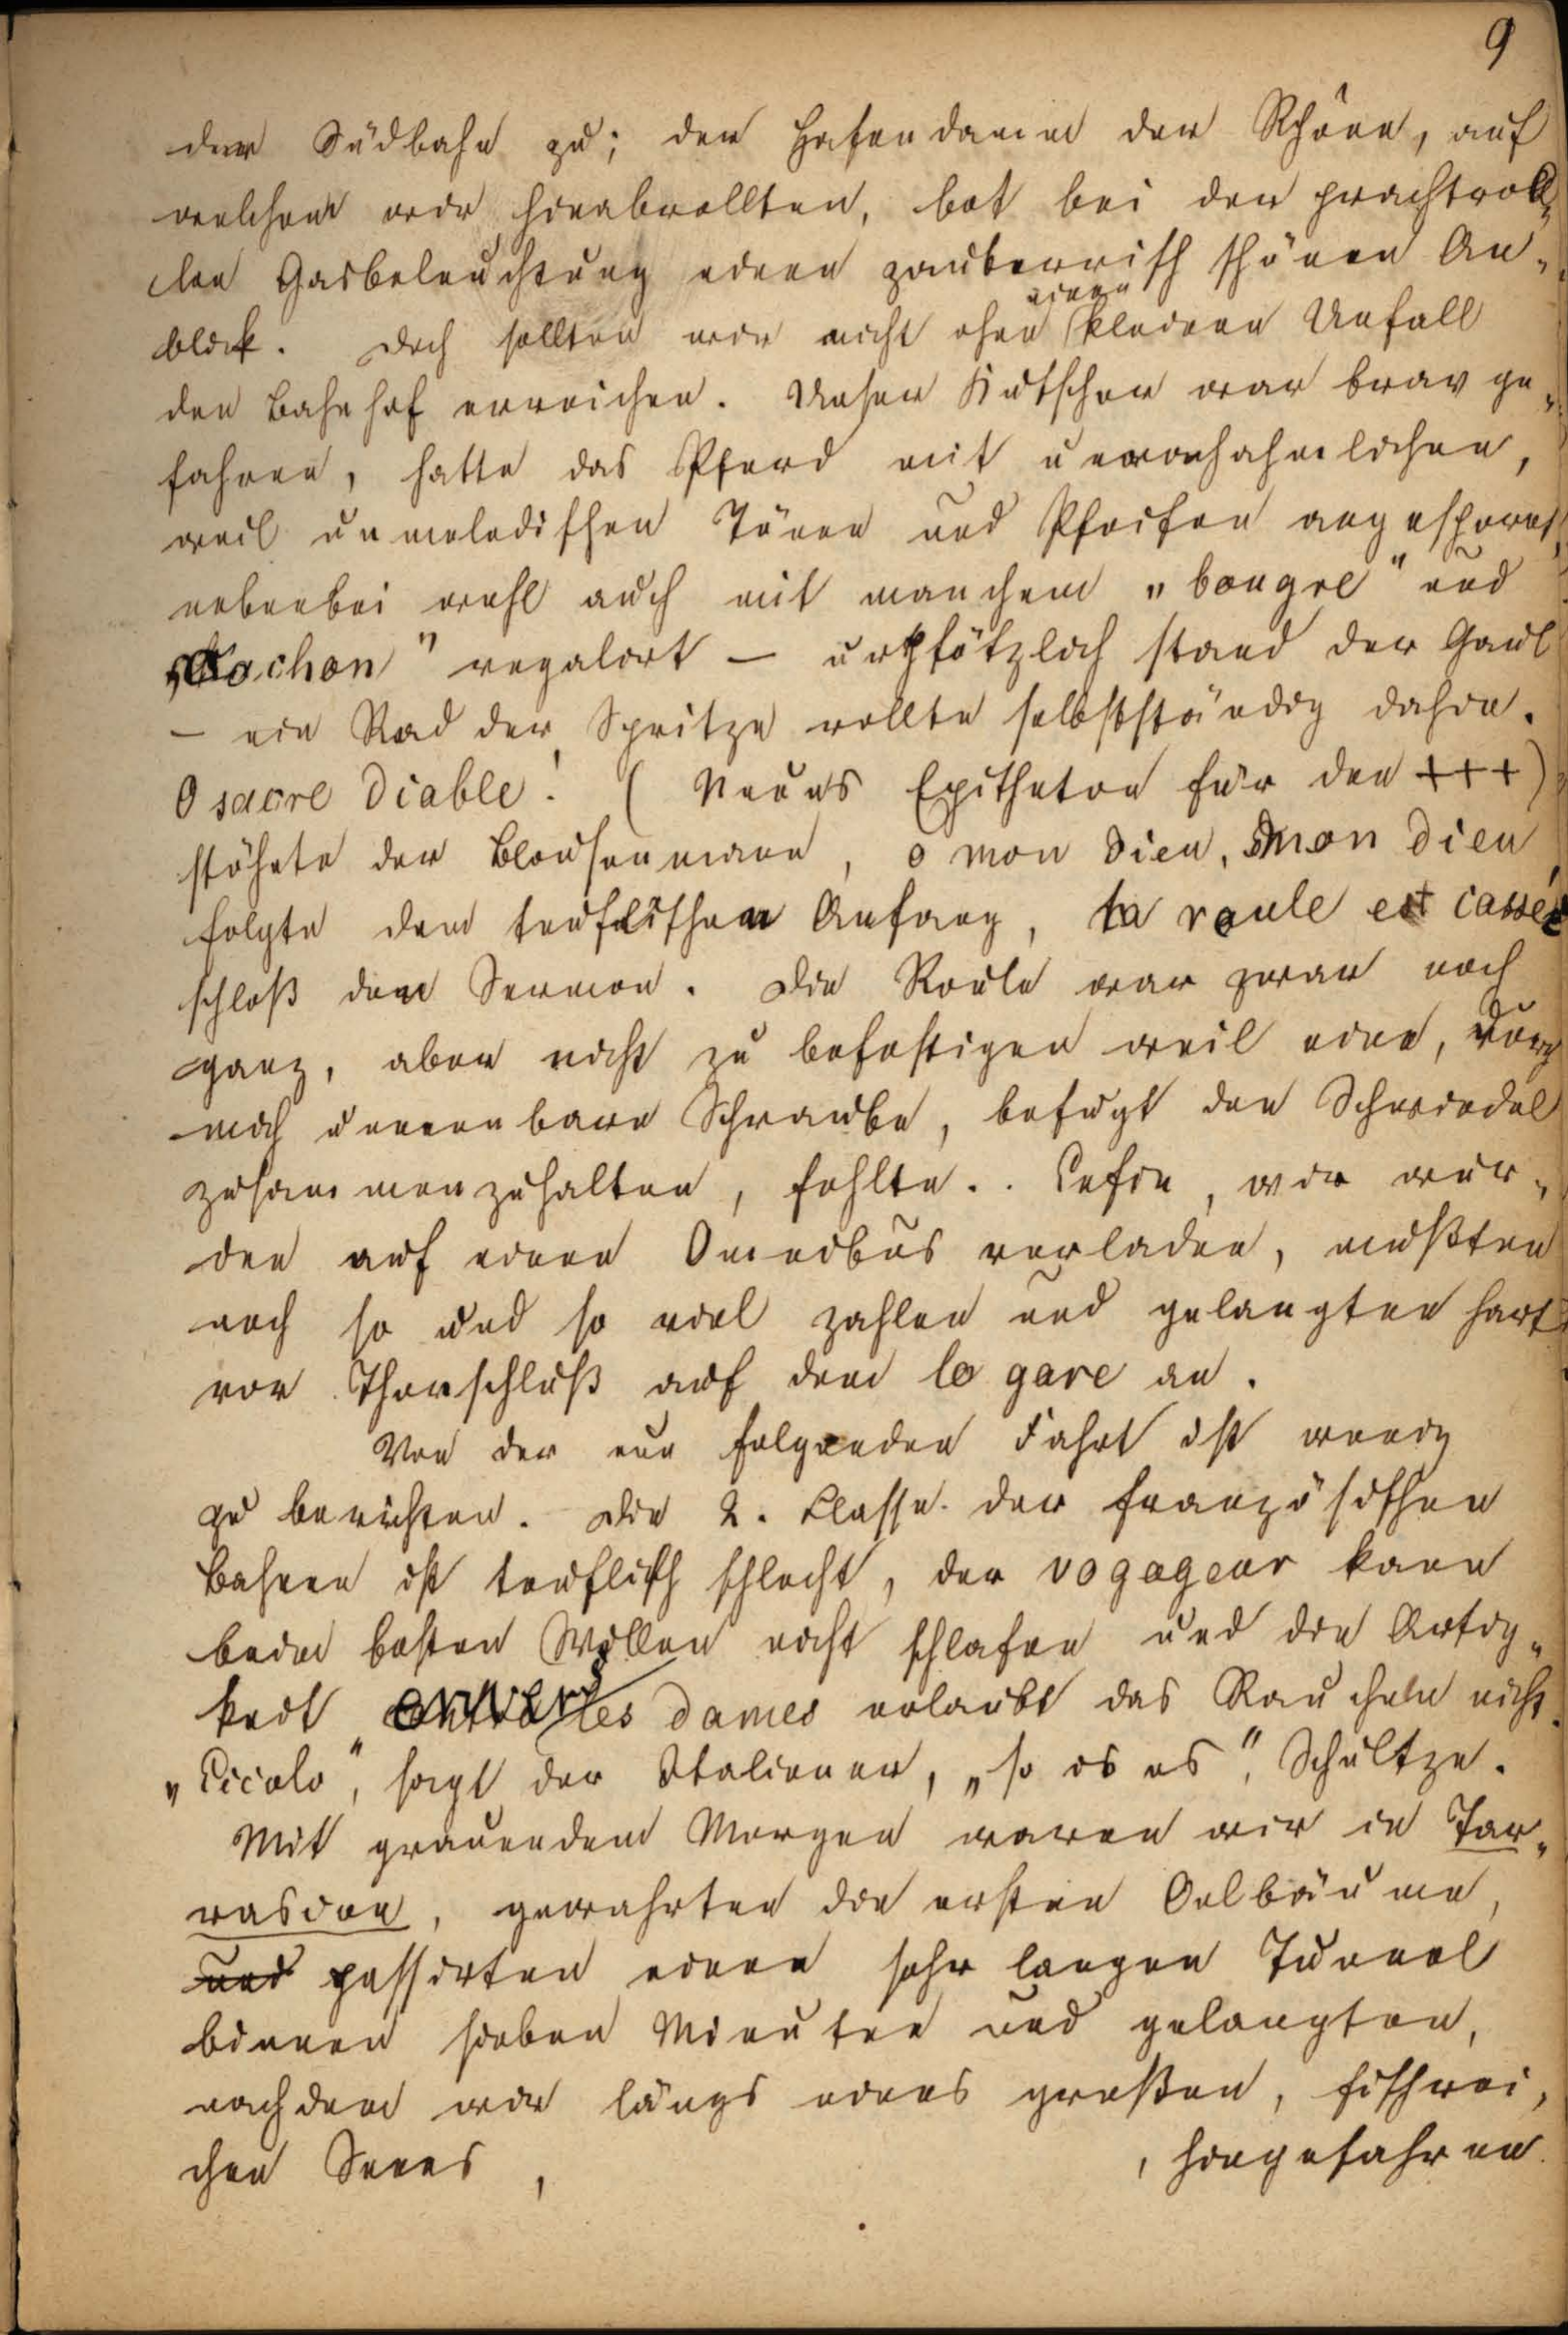 9
der Südbahn zu; der Hafendamm der Rhône, auf
welchem wir hinabrollten, bot bei der prachtvol-
len Gasbeleuchtung einen zauberrisch schönen An-
blick. Doch sollten wir nicht ohne einen kleinen Unfall
den Bahnhof erreichen. Unser Kutscher war brav ge-
fahren, hatte das Pferd mit unnachahmlichen,
weil unmelodischen Tönen und Pfeifen angespornt,
nebenbei wohl auch mit manchem „bougre" und
„Cochon" regalirt — urplötzlich stand der Gaul
— ein Rad der Spritze rollte selbstständig dahin.
O sacre Diable! (Neues Epitheton für den +++)
stöhnte der Blousenmann, o mon Dieu, mon Dieu
folgte dem teuflischen Anfang, la roule est cassée
schloß den Sermon. Die Roule war zwar noch
ganz, aber nicht zu befestigen weil eine,
mich unnennbare Schraube, befugt den Schwindel
zusammenzuhalten, fehlte.. Enfin, wir wur-
den auf einen Omnibus verladen, mußten
noch so und so viel zahlen und gelangten hart
vor Thorschluß auf dem le gare an.
Von der nun folgenden Fahrt ist wenig
zu berichten. Die 2. Classe der französischen
Bahnen ist teuflisch schlecht, der vogageur kann
beim besten Willen nicht schlafen und die Artig-
keit envers les dames erlaubt das Raucheln nicht.
„Cicolo", sagt der Italiener, „so is es", Schultze.
Mit grauendem Morgen waren wir in Tar-
rascon, gewahrten die ersten Oelbäume,
und passirten einen sehr langen Tunnel
binnen sieben Minuten und gelangten,
nachdem wir längs eines großen, fischrei-
chen Sees, , hingefahren.